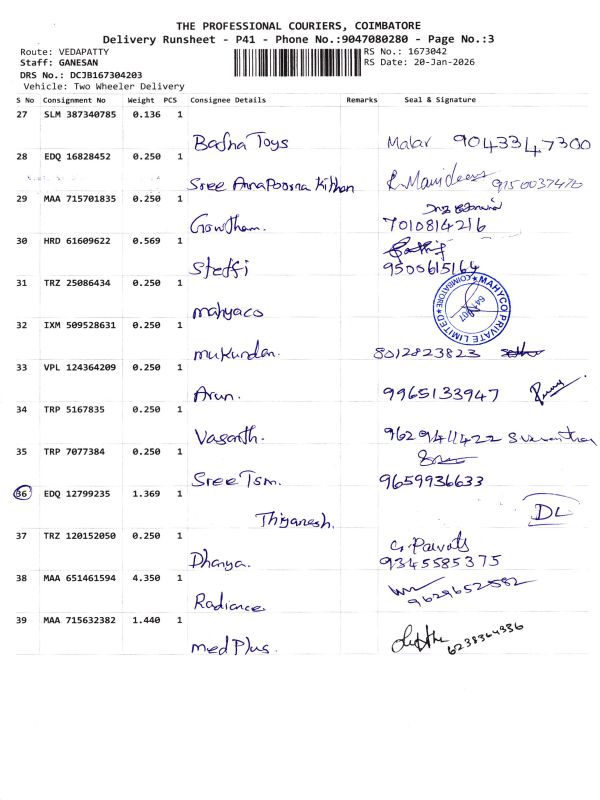 THE PROFESSIONAL COURIERS, COIMBATORE
Delivery Runsheet - P41 - Phone No.:9047080280 - Page No.:3
Route: VEDAPATTY RS No.: 1673042
Staff: GANESAN RS Date: 20-Jan-2026
DRS No.: DCJB167304203
Vehicle: Two Wheeler Delivery
S No Consignment No Weight PCS Consignee Details Remarks Seal & Signature
27 SLM 387340785 0.136 1
Basha Toys Malar 9043347300
28 EDQ 16828452 0.250 1
Sree AnnaPoorna Kitchan 9150037470
29 MAA 715701835 0.250 1
Gowtham. 7010814216
30 HRD 61609622 0.569 1
Steffi 9500615164
31 TRZ 25086434 0.250 1
mahyaco MAHYCO PRIVATE LIMITED COIMBATORE
32 IXM 509528631 0.250 1
mukundan. 8012823823
33 VPL 124364209 0.250 1
Arun. 9965133947
34 TRP 5167835 0.250 1
Vasanth. 9629411422
35 TRP 7077384 0.250 1
Sree Tsm. 9659936633
36 EDQ 12799235 1.369 1
Thiganesh. DL
37 TRZ 120152050 0.250 1
Dhanya. 9345585375
38 MAA 651461594 4.350 1
Radiance 9629652582
39 MAA 715632382 1.440 1
medPlus. 6238364336